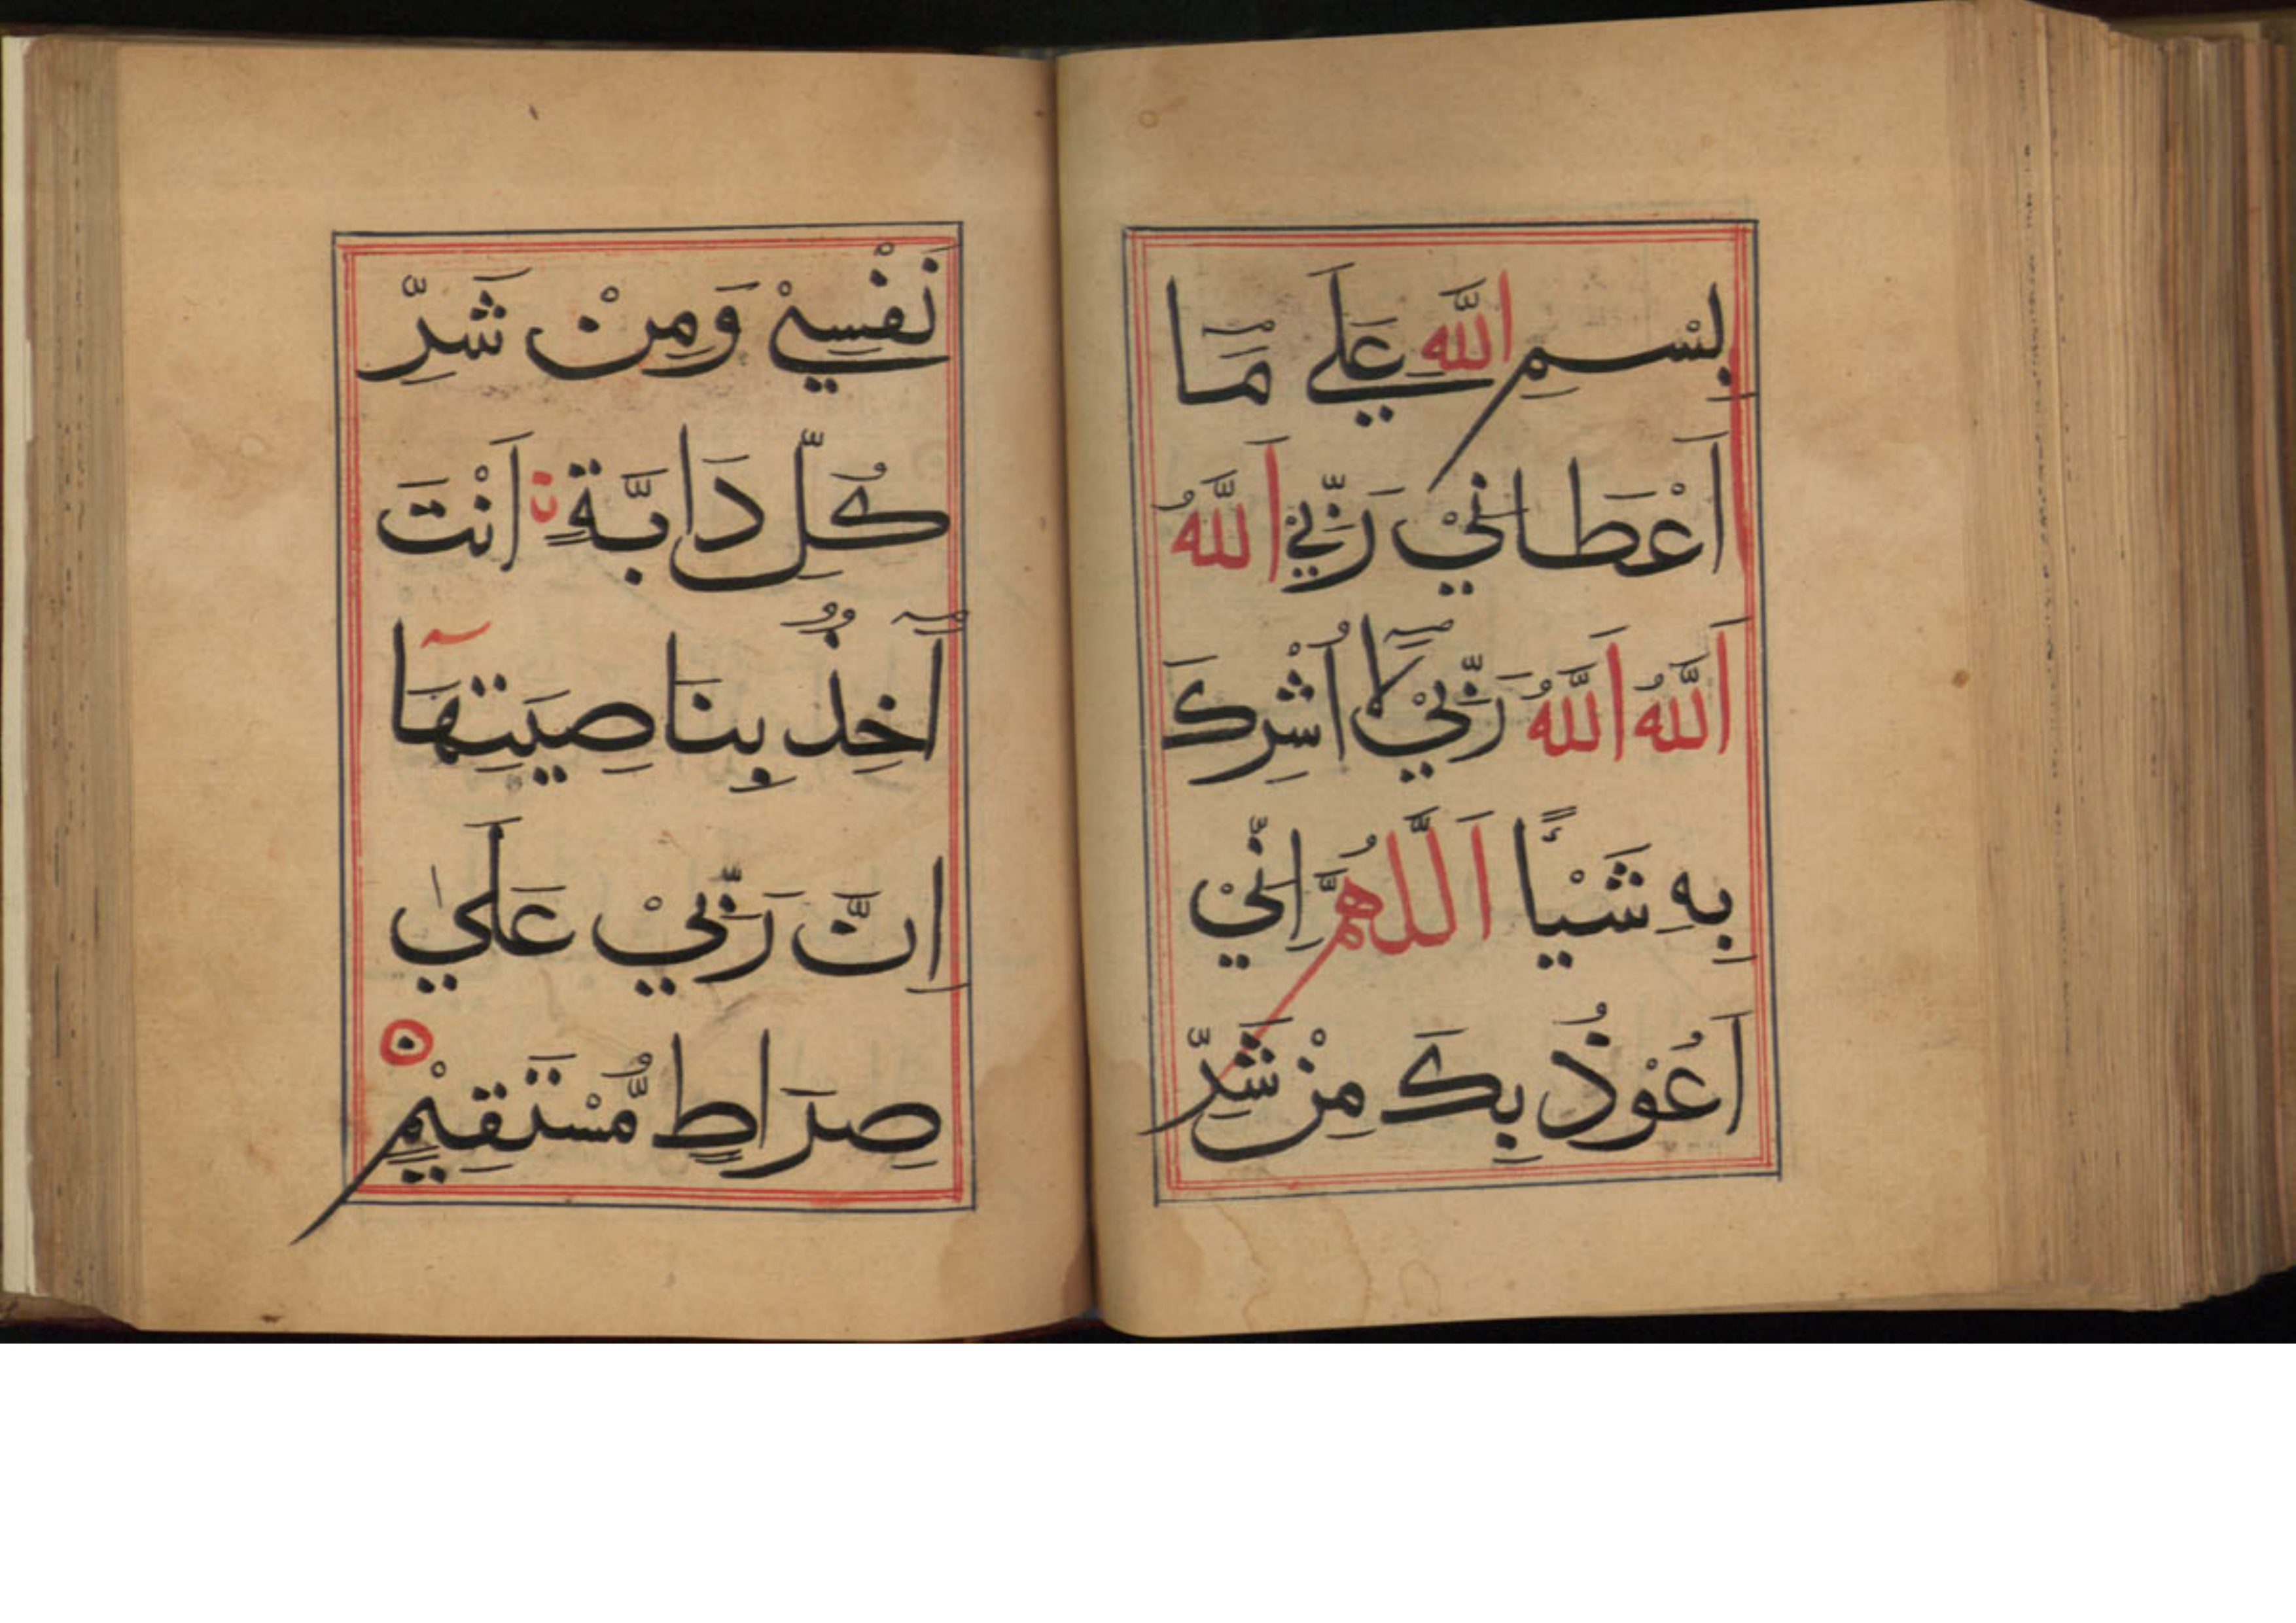 بِسْمِ اللّٰهِ عَلَي مَٓا
اَعْطَانِيْ رَبِّيْ اَللّٰهُ
اَللّٰهُ اَللّٰهُ رَبِّيْ لَٓا اُشْرِكَ
بِهِ شَيْـًٔا اَللّٰهُمَّ اِنِّيْ
اَعُوْذُ بِكَ مِنْ شَرِّ
نَفْسِيْ وَمِنْ شَرِّ
كُلِّ دَابَّةٍ اَنْتَ
اٰخِذٌ بِنَاصِيَتِهَآ
اِنَّ رَبِّيْ عَلٰي
صِرَاطٍ مُّسْتَقِيْمٍ